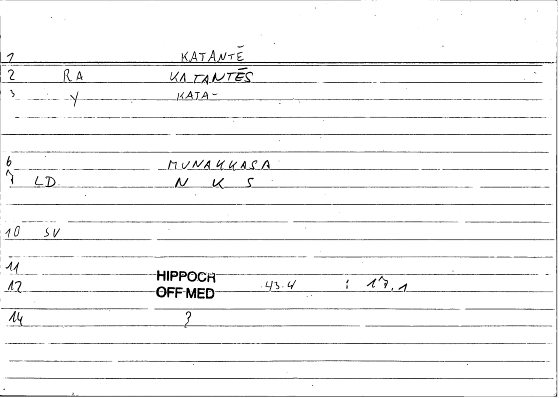 1 KATANTĒ
2 RA KATANTĒS
3 Y KATA-
6 MUNAKKASA
7 LD N K S
10 SV
11
12 HIPPOCR OFF MED 43.4 : 17.1
14 3